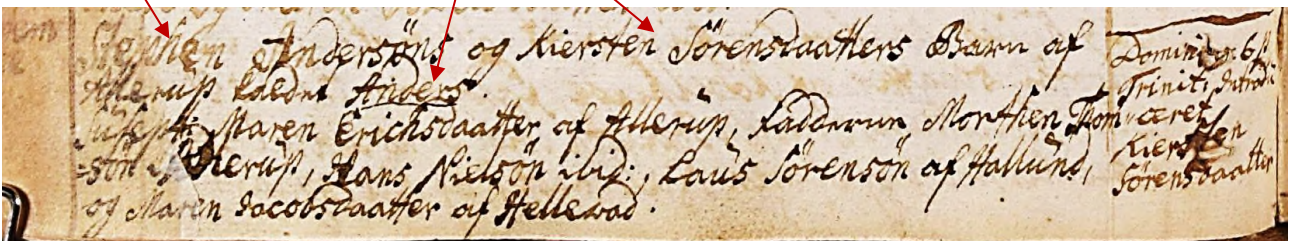 Stephen Andersöns og Kiersten Sörensdaatters Barn af
Allerup kaldet Anders.
Suscept: Maren Erichsdaatter af Allerup, Faddere, Morthen Thom-
-sön Allerup, Hans Nielsön ibid:, Laus Sörensön af Hallund,
og Maren Jacobsdaatter af Hellevad.
Dominica 6 p
Trinit, Introdu
ceret
Kiersten
Sörensdaatter